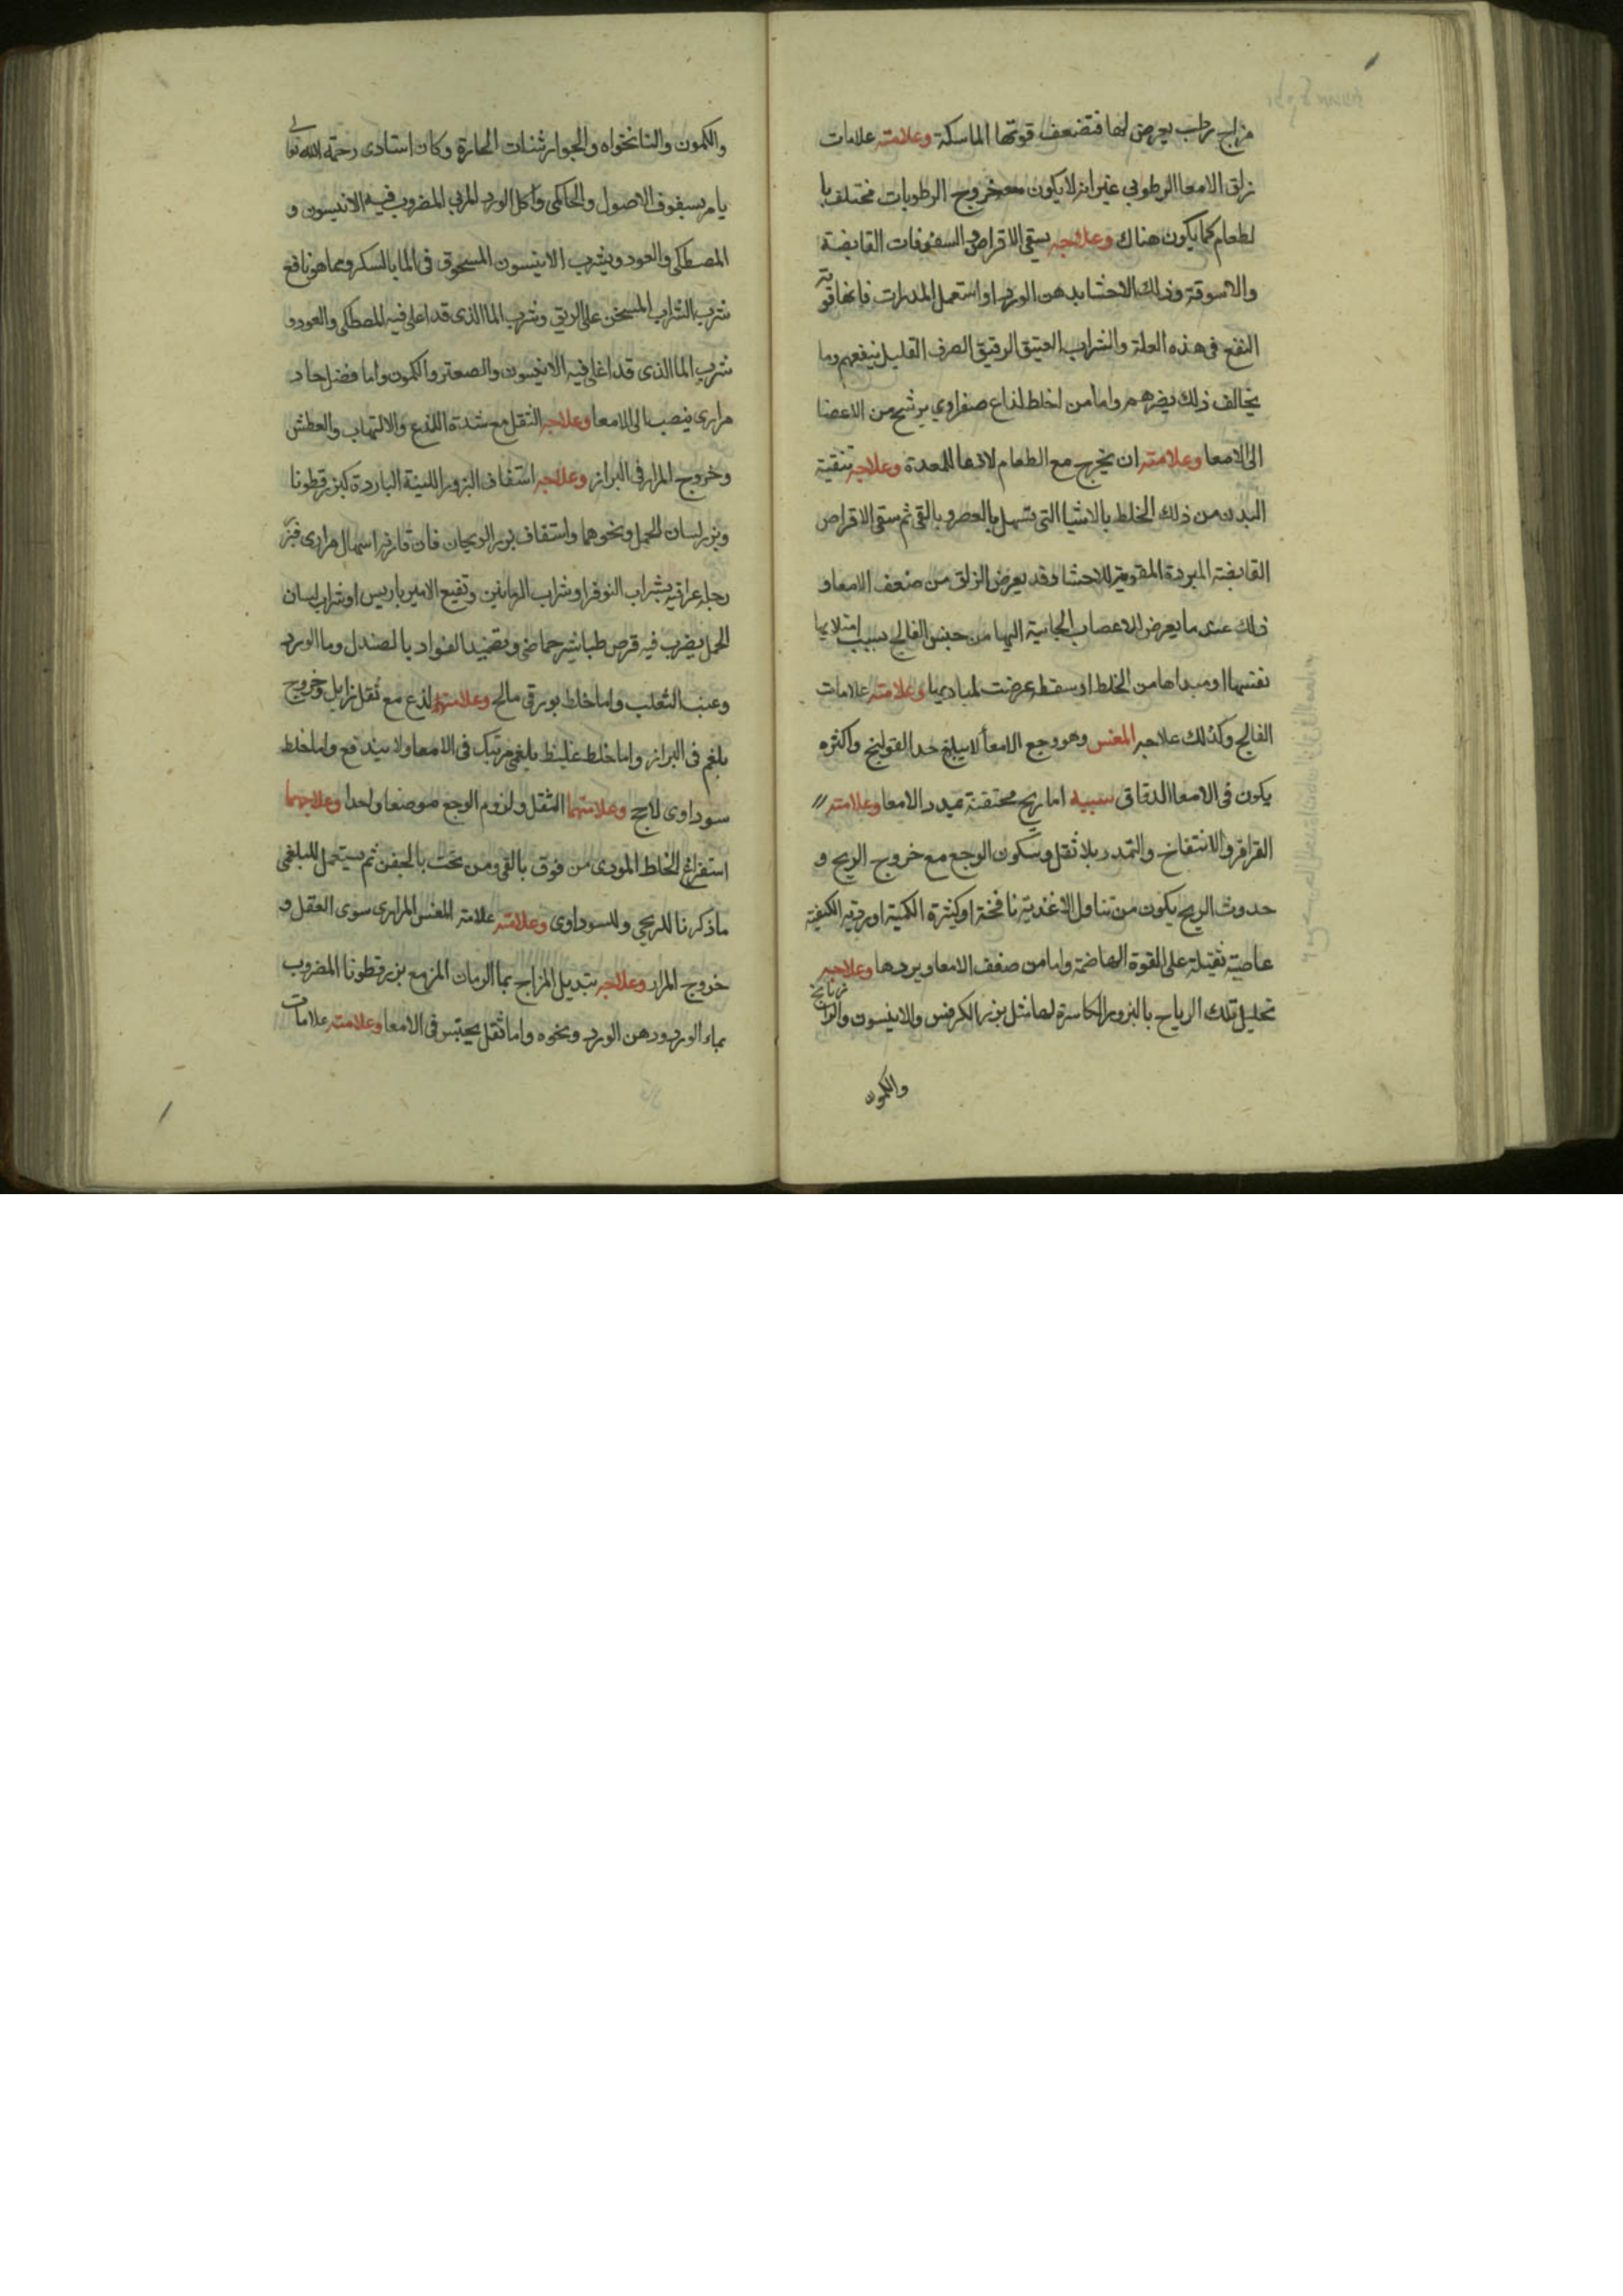 مزاج رطب يعرض لها فتضعف قوتها الماسكة وعلامته علامات
زلق الامعا الرطوبي غير انه لا يكون معه خروج الرطوبات مختلف با
لطعام كما يكون هناك وعلاجه بسقي الاقراص و السفوفات القابضة
والاسوقة وذلك الاحشا بدهن الورد او استعمل المدرات فانها قوية
النفع في هذه العلة والشراب العتيق الرقيق الصرف القليل ينفعهم وما
يخالف ذلك يضرهم واما من اخلط لذاع صفراوي يرشح من الاعضا
الى الامعا وعلامته ان يخرج مع الطعام لاذعا للمعدة وعلاجه تنقية
البدن من ذلك الخلط بالاشيا التي تسهل بالعصر و بالقي ثم سقي الاقراص
القابضة المبردة المقوية للاحشا وقد يعرض الزلق من ضعف الامعا و
ذلك عندما يعرض للاعصاب الجائية اليها من جنس الفالج بسبب امتلايها
نفسها او مبداها من الخلط او سقطه عرضت لمباديها وعلامته علامات
الفالج وكذلك علاجه المغس وهو وجع الامعأ لا يبلغ حد القولنج واكثره
يكون في الامعا الدقاق سببه اما ريح محتقنة تمدد الامعا وعلامته
القراقر والانتفاخ والتمدد بلا ثقل وسكون الوجع مع خروج الريح و
حدوث الريح يكون من تناول الاغذية نافخة او كثيرة الكمية او ردية الكيفية
عاصية ثقيلة على القوة الهاضمة واما من ضعف الامعا وبردها وعلاجه
تحليل تلك الرياح بالبزور الكاسرة لها مثل بزر الكرفس والانيسون والرازيانج
والكمون
والكمون والنانخواه والجوارشنات الحارة وكان استادى رحمة الله تعالى
يامر بسفوف الاصول والحاكمى واكل الورد المربي المضروب فيه الانيسون و
المصطكى والعود ويشرب الانيسون المسحوق فى الما بالسكر ومما هو نافع
شرب الشراب المسخن على الريق وشرب الما الذى قد اغلى فيه المصطكى والعود و
شرب الما الذى قد اغلى فيه الانيسون والصعتر والكمون واما فضل حاد
مرارى ينصب الى الامعا وعلاجه الثقل مع شدة اللذع والالتهاب والعطش
وخروج المرار فى البراز وعلاجه استفاف البزور اللينة الباردة كبزر قطونا
وبزر لسان الحمل ونحوهما واستفاف بزر الريحان فان قارنه اسهال مرارى فبزر
رجلة عراقيه بشراب النوفر او شراب الرمانين ونقيع الامير باريس او شراب لسان
الحمل يضرب فيه قرص طباشير حماضى وتضميد الفواد بالصندل وما الورد
وعنب الثعلب واما خلط بورقى مالح وعلامته لذع مع ثقل زايل وخروج
بلغم فى البراز واما خلط غليظ بلغمى مرتبك فى الامعا ولا يندفع واما خلط
سوداوى لاحج وعلامتهما الثقل ولزوم الوجع موضعا واحدا وعلاجهما
استفراغ الخلط الموذى من فوق بالقى ومن تحت بالحقن ثم يستعمل للبلغمى
ما ذكرنا للريحى وللسوداوى وعلامته علامة المغس المرارى سوى الثقل و
خروج المرار وعلاجه تبديل المزاج بما الرمان المز مع بزر قطونا المضروب
بماء الورد ودهن الورد ونحوه واما ثقل يحتبس فى الامعا وعلامته علامات